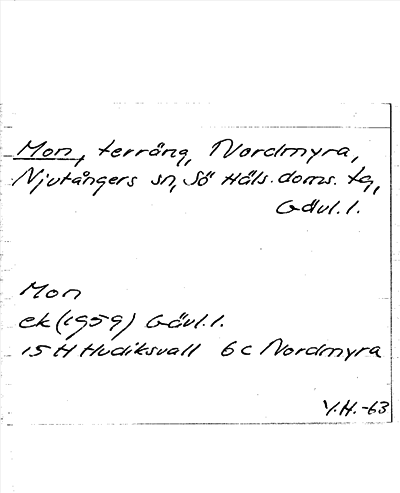 Mon, terräng, Nordmyra,
Njutångers sn, Sö Häls. doms. tg,
Gävl. l.
Mon
ek (1959) Gävl. l.
15 H Hudiksvall 6 c Nordmyra
Y.H. -63